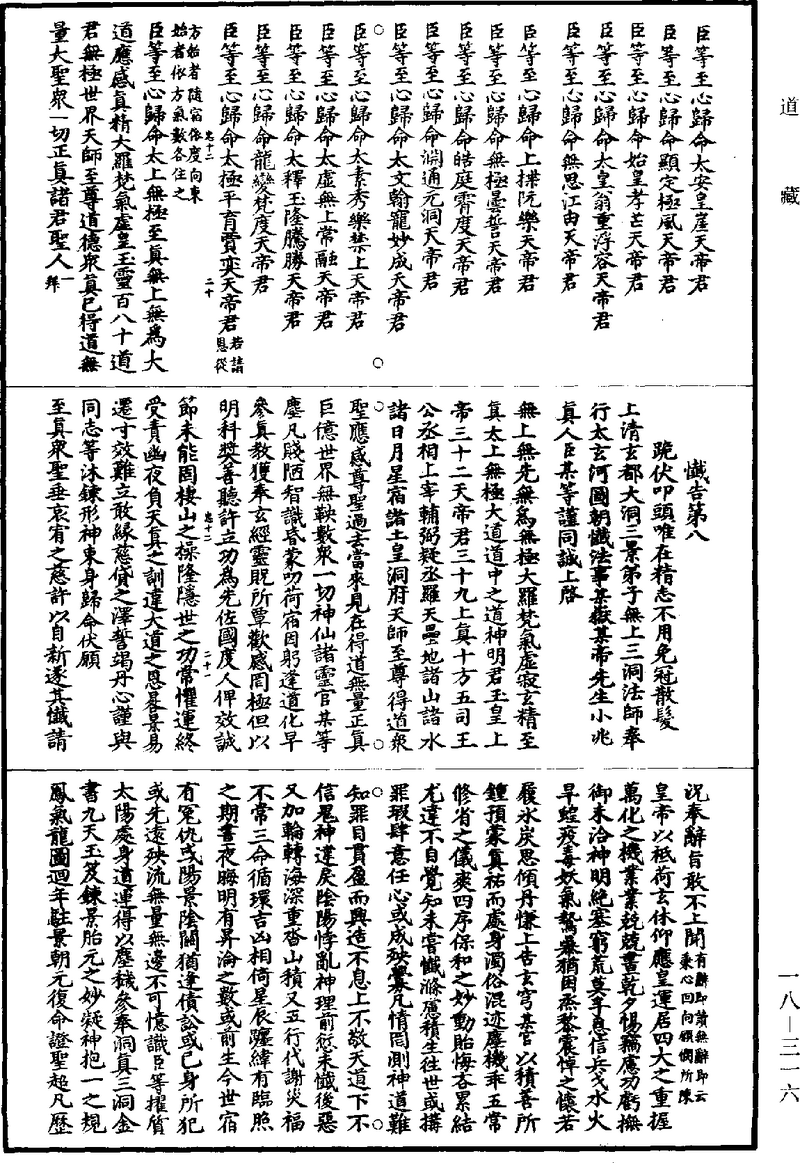 道藏
臣等至心歸命太安皇崖天帝君
臣等至心歸命顯定極風天帝君
臣等至心歸命始皇孝芒天帝君
臣等至心歸命太皇翁重浮容天帝君
臣等至心歸命無思江由天帝君
臣等至心歸命上揲阮樂天帝君
臣等至心歸命無極曇誓天帝君
臣等至心歸命皓庭霄度天帝君
臣等至心歸命淵通元洞天帝君
臣等至心歸命太文翰寵妙成天帝君
臣等至心歸命太素秀樂禁上天帝君
臣等至心歸命太虛無上常融天帝君
臣等至心歸命太釋玉隆騰勝天帝君
臣等至心歸命龍變梵度天帝君
臣等至心歸命太極平育賈奕天帝君若請恩從
方始者隨宿依度向東
始者依方氣數各住之
臣等至心歸命太上無極至真無上無為大
道應感真精大羅梵氣虛皇玉靈百八十道
君無極世界天師至尊道德眾真已得道無
量大聖眾一切正真諸君聖人一拜
懺告第八
跪伏叩頭唯在精志不用免冠散髮
上清玄都大洞三景弟子無上三洞法師奉
行太玄河圖朝懺法事某嶽某帝先生小兆
真人臣某等謹同誠上啓
無上無先無為無極大羅梵氣虛寂玄精至
真太上無極大道道中之道神明君玉皇上
帝三十二天帝君三十九上真十方五司王
公丞相上宰輔弼疑丞羅天壘地諸山諸水
諸日月星宿諸土皇洞府天師至尊得道眾
聖應感尊聖過去當來見在得道無量正真
巨億世界無鞅數眾一切神仙諸靈官某等
塵凡賤陋智識昏蒙叨荷宿因躬逢道化早
參真教獲奉玄經靈貺所覃歡感罔極但以
明科獎善聽許立功為先佐國度人俾效誠
節未能固棲山之操隆隱世之功常懼運終
受責幽夜負天真之訓違大道之恩晷景易
遷寸效難立敢緣慈貸之澤誓竭丹心謹與
同志等沐鍊形神束身歸命伏願
至真眾聖垂哀宥之慈許以自新遂其懺請
況奉辭旨敢不上聞有辭即讀無辭即云秉心回向頒憫所陳
皇帝以祗荷玄休仰應皇運居四大之重握
萬化之機業業兢兢晝乾夕惕竊應功虧撫
御未洽神明絕塞窮荒莫孚惠信兵戈水火
旱蝗疫毒妖氣鴛暴猶因烝黎震悼之懷若
履氷炭思傾丹慊上告玄穹某官以積善所
鍾預蒙真祐而處身濁俗混迹塵機乖五常
修省之儀爽四序保和之妙動貽悔吝累結
尤違不自覺知未嘗懺滌應積生往世或搆
罪瑕肆意任心或成殃舋凡情罔測神道難
知罪目貫盈而興造不息上不敬天道下不
信鬼神違戾陰陽悖亂神理前愆未懺後惡
又加輪轉海深重沓山積又五行代謝災福
不常三命循環吉凶相倚星辰躔緯有臨照
之期晝夜晦明有昇淪之數或前生今世宿
有冤仇或陽景陰關猶逢債訟或已身所犯
或先遠殃流無量無邊不可憶識臣等擢質
太陽處身道運得以塵穢參奉洞真三洞金
書九天玉笈鍊景胎元之妙凝神抱一之規
鳳氣龍圖迴年駐景朝元復命證聖超凡歷
一八—三一六